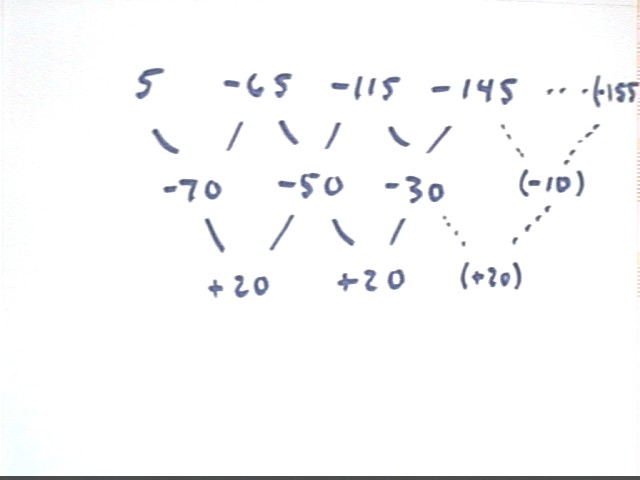 5 -65 -115 -145 ... (-155
-70 -50 -30 (-10)
+20 +20 (+20)